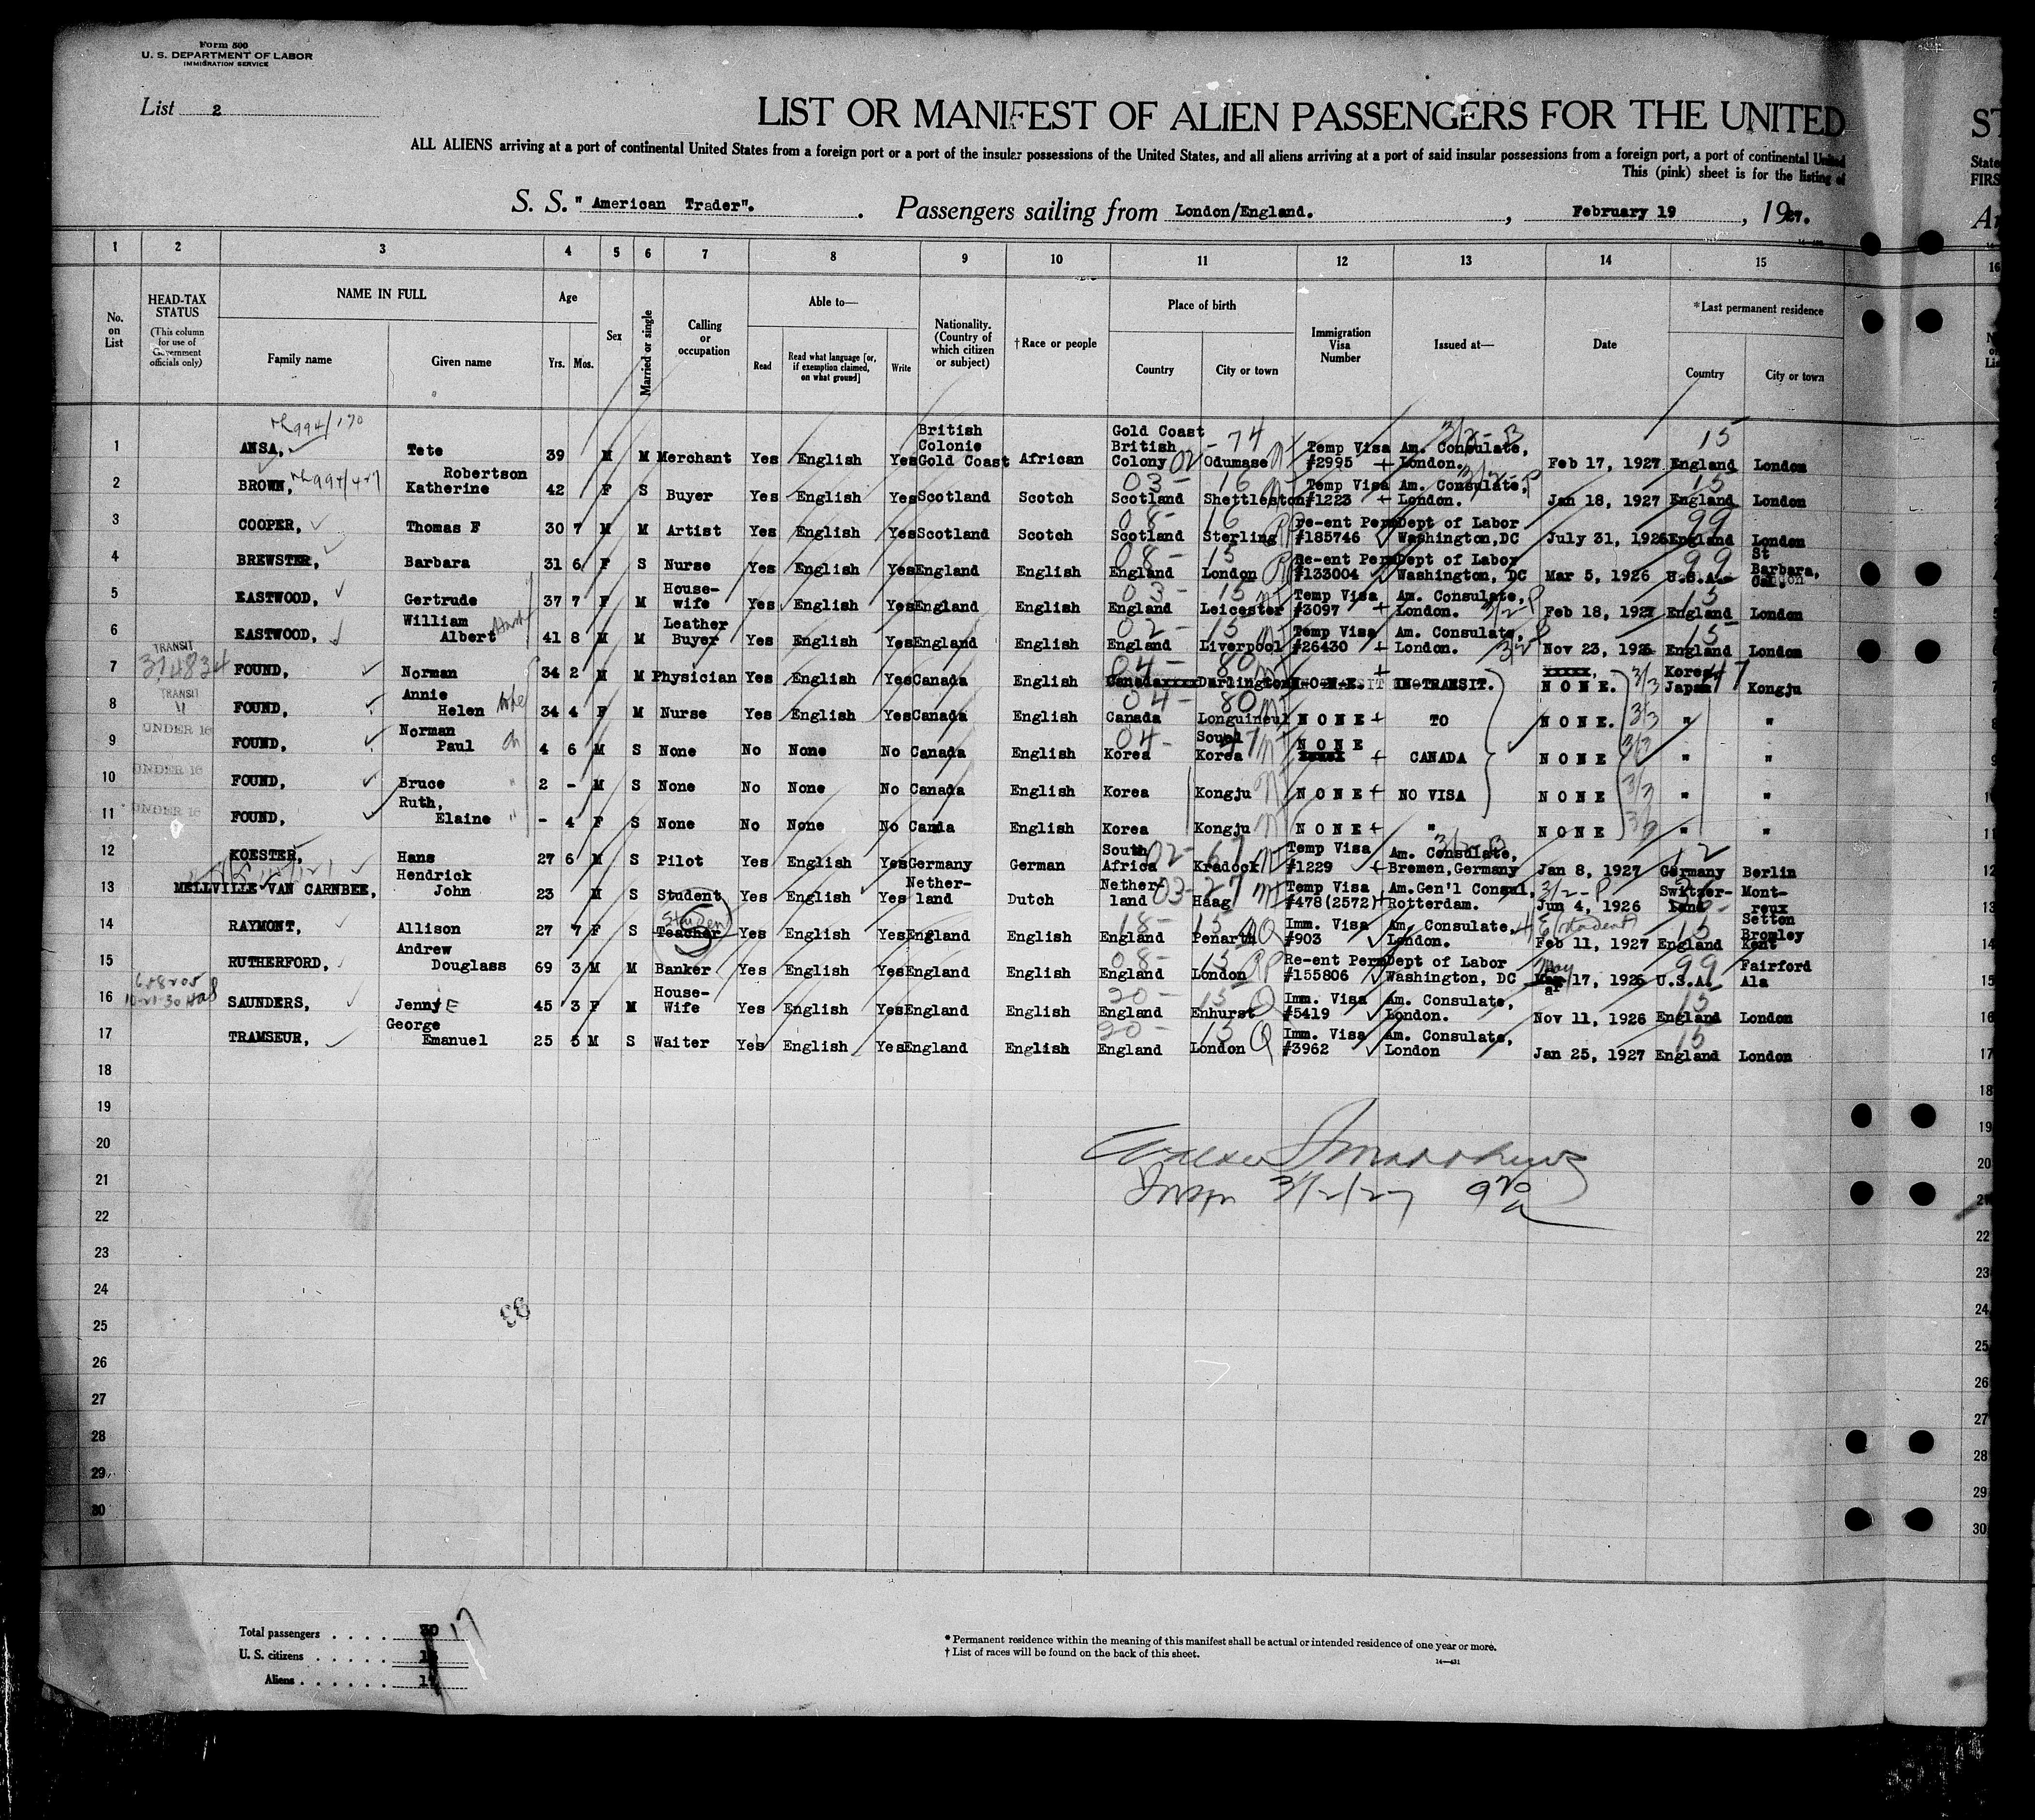 Form 500
U. S. DEPARTMENT OF LABOR
IMMIGRATION SERVICE
List 2
LIST OR MANIFEST OF ALIEN PASSENGERS FOR THE UNITED
ALL ALIENS arriving at a port of continental United States from a foreign port or a port of the insular possessions of the United States, and all aliens arriving at a port of said insular possessions from a foreign port, a port of continental United
This (pink) sheet is for the listing of
S. S. " American Trader". Passengers sailing from London/England. , February 19 , 1927.
1 2 3 4 5 6 7 8 9 10 11 12 13 14 15
No. on List HEAD-TAX STATUS (This column for use of Government officials only) NAME IN FULL Family name Given name Age Yrs. Mos. Sex Married or single Calling or occupation Able to— Read Read what language [or, if exemption claimed, on what ground] Write Nationality. (Country of which citizen or subject) †Race or people Place of birth Country City or town Immigration Visa Number Issued at— Date *Last permanent residence Country City or town
1 ANSA, Tete 39 M M Merchant Yes English Yes British Colonie Gold Coast African Gold Coast British Colony Odumase Temp Visa #2995 Am. Consulate, London. Feb 17, 1927 England London
2 BROWN, Robertson Katherine 42 F S Buyer Yes English Yes Scotland Scotch Scotland Shettleston Temp Visa #1223 Am. Consulate, London. Jan 18, 1927 England London
3 COOPER, Thomas F 30 7 M M Artist Yes English Yes Scotland Scotch Scotland Sterling re-ent Perm #185746 Dept of Labor Washington,DC July 31, 1926 England London
4 BREWSTER, Barbara 31 6 F S Nurse Yes English Yes England English England London Re-ent Perm #133004 Dept of Labor Washington, DC Mar 5, 1926 U.S.A. St Barbara, Cal.
5 EASTWOOD, Gertrude 37 7 F M House-wife Yes English Yes England English England Leicester Temp Visa #3097 Am. Consulate, London. Feb 18, 1927 England London
6 EASTWOOD, William Albert 41 8 M M Leather Buyer Yes English Yes England English England Liverpool Temp Visa #26430 Am. Consulate, London. Nov 23, 1926 England London
7 TRANSIT 374834 FOUND, Norman 34 2 M M Physician Yes English Yes Canada English Canada Darlington NONE IN TRANSIT. NONE. Korea, Japan Kongju
8 TRANSIT " FOUND, Annie Helen 34 4 F M Nurse Yes English Yes Canada English Canada Longuineul NONE TO NONE. " "
9 UNDER 16 FOUND, Norman Paul 4 6 M S None No None No Canada English Korea Soul Korea NONE CANADA NONE " "
10 UNDER 16 FOUND, Bruce 2 - M S None No None No Canada English Korea Kongju NONE NO VISA NONE " "
11 UNDER 16 FOUND, Ruth, Elaine - 4 F S None No None No Canda English Korea Kongju NONE " NONE " "
12 KOESTER, Hans 27 6 M S Pilot Yes English Yes Germany German South Africa Kradock Temp Visa #1229 Am. Consulate, Bremen,Germany Jan 8, 1927 Germany Berlin
13 MELLVILLE VAN CARNBEE, Hendrick John 23 M S Student Yes English Yes Nether-land Dutch Nether-land Haag Temp Visa #478(2572) Am.Gen'l Consul, Rotterdam. Jun 4, 1926 Switzer-land Mont-reux
14 RAYMONT, Allison 27 7 F S Teacher Student Yes English Yes England English England Penarth Imm. Visa #903 Am. Consulate, London. Feb 11, 1927 England Setton Bromley Kent
15 RUTHERFORD, Andrew Douglass 69 3 M M Banker Yes English Yes England English England London Re-ent Perm #155806 Dept of Labor Washington, DC May 17, 1926 U.S.A. Fairford Ala
16 SAUNDERS, Jenny E 45 3 F M House-Wife Yes English Yes England English England Enhurst Imm. Visa #5419 Am. Consulate, London. Nov 11, 1926 England London
17 TRAMSEUR, George Emanuel 25 5 M S Waiter Yes English Yes England English England London Imm. Visa #3962 Am. Consulate, London Jan 25, 1927 England London
18
19
20
21
Inspr 3/2/27
22
23
24
25
26
27
28
29
30
Total passengers . . . . 30 17
U. S. citizens . . . . .
Aliens . . . . . . 17
* Permanent residence within the meaning of this manifest shall be actual or intended residence of one year or more.
† List of races will be found on the back of this sheet.
14—431